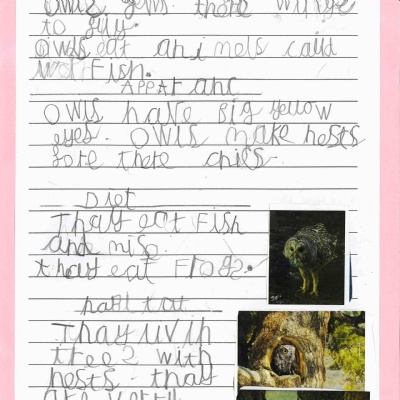 Owls yous. there wings
to fly.
Owls eat animels calld
Fish.
APPEAranc
Owls have Big yellow
eyes. Owls make nests
fore there chics.
Diet
Thay eat Fish
and mise.
thay eat Frogs.
habttat
Thay liv in
trees with
nests. thay
are verry